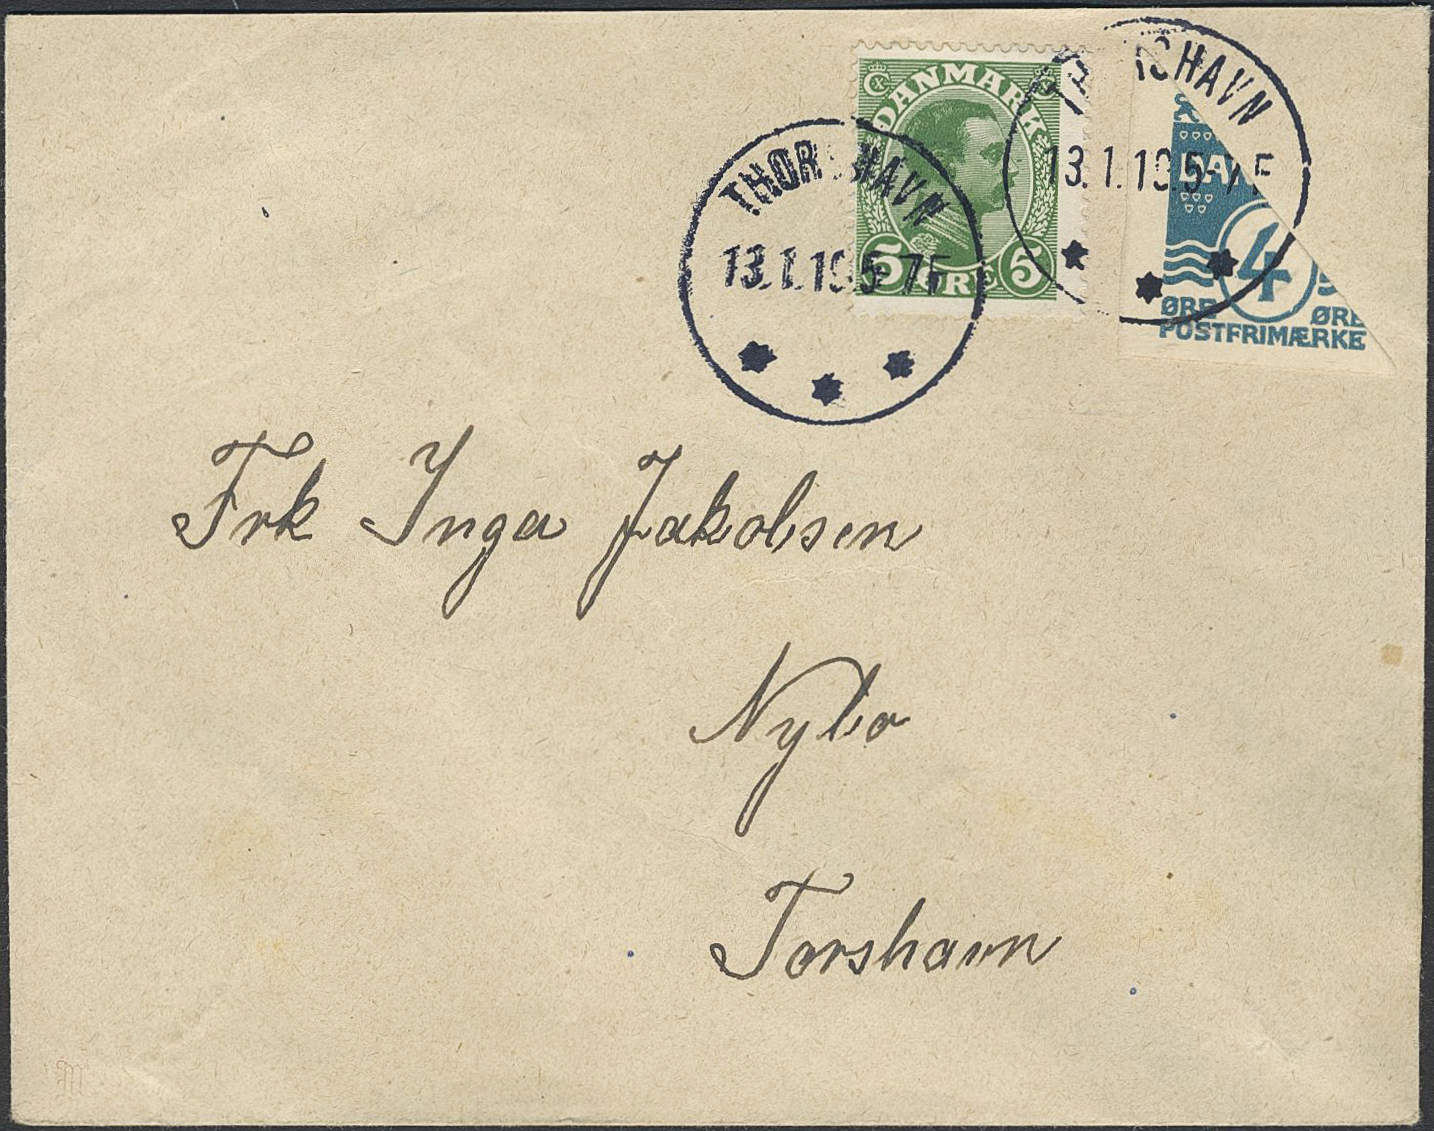 DANMARK
5 ØRE 5
THORSHAVN
13.1.19.5-7F
THORSHAVN
13.1.19.5-7F
DA
4
ØRE ØRE
POSTFRIMÆRKE
Frk Inga Jakobsen
Nybo
Torshavn